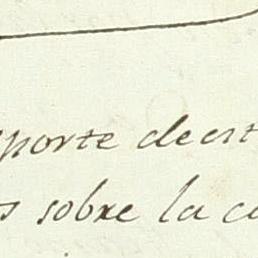 porte decit
s sobre la ca